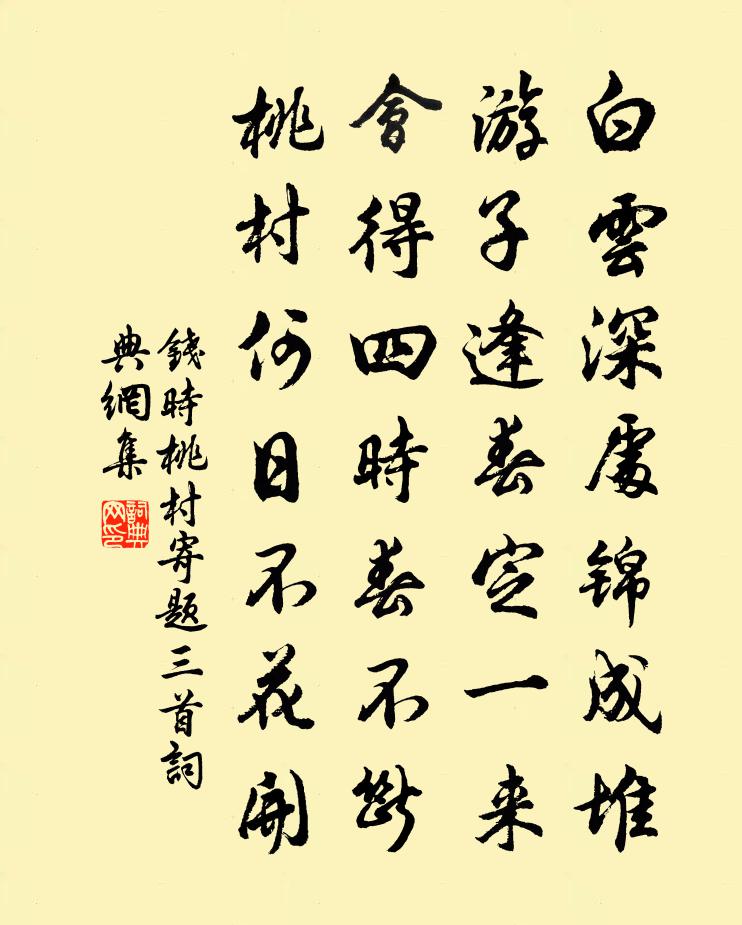 白雲深處錦成堆
游子逢春定一来
會得四時春不斷
桃村何日不花開
錢時桃村寄題三首詞
典網集
詞典
网印